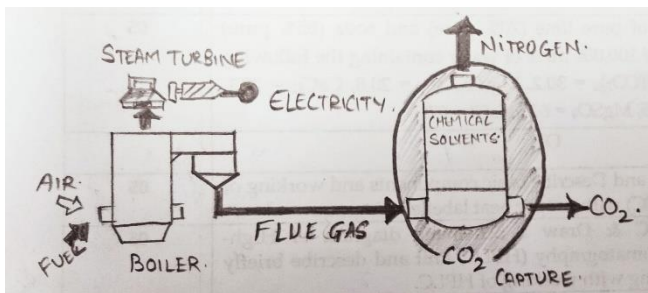 STEAM TURBINE
NITROGEN.
ELECTRICITY.
CHEMICAL
SOLVENTS.
AIR.
FUEL
BOILER.
FLUE GAS
CO₂.
CO₂
CAPTURE.